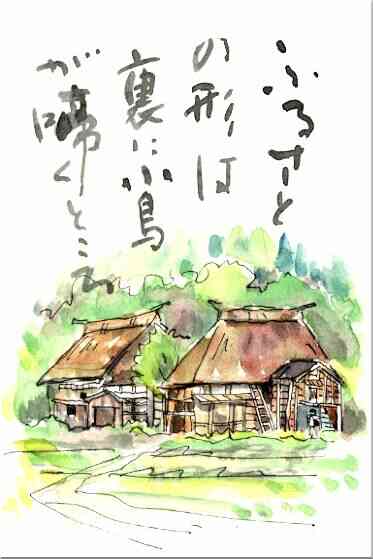 ふるさと
の形は
裏に小鳥
が啼くところ